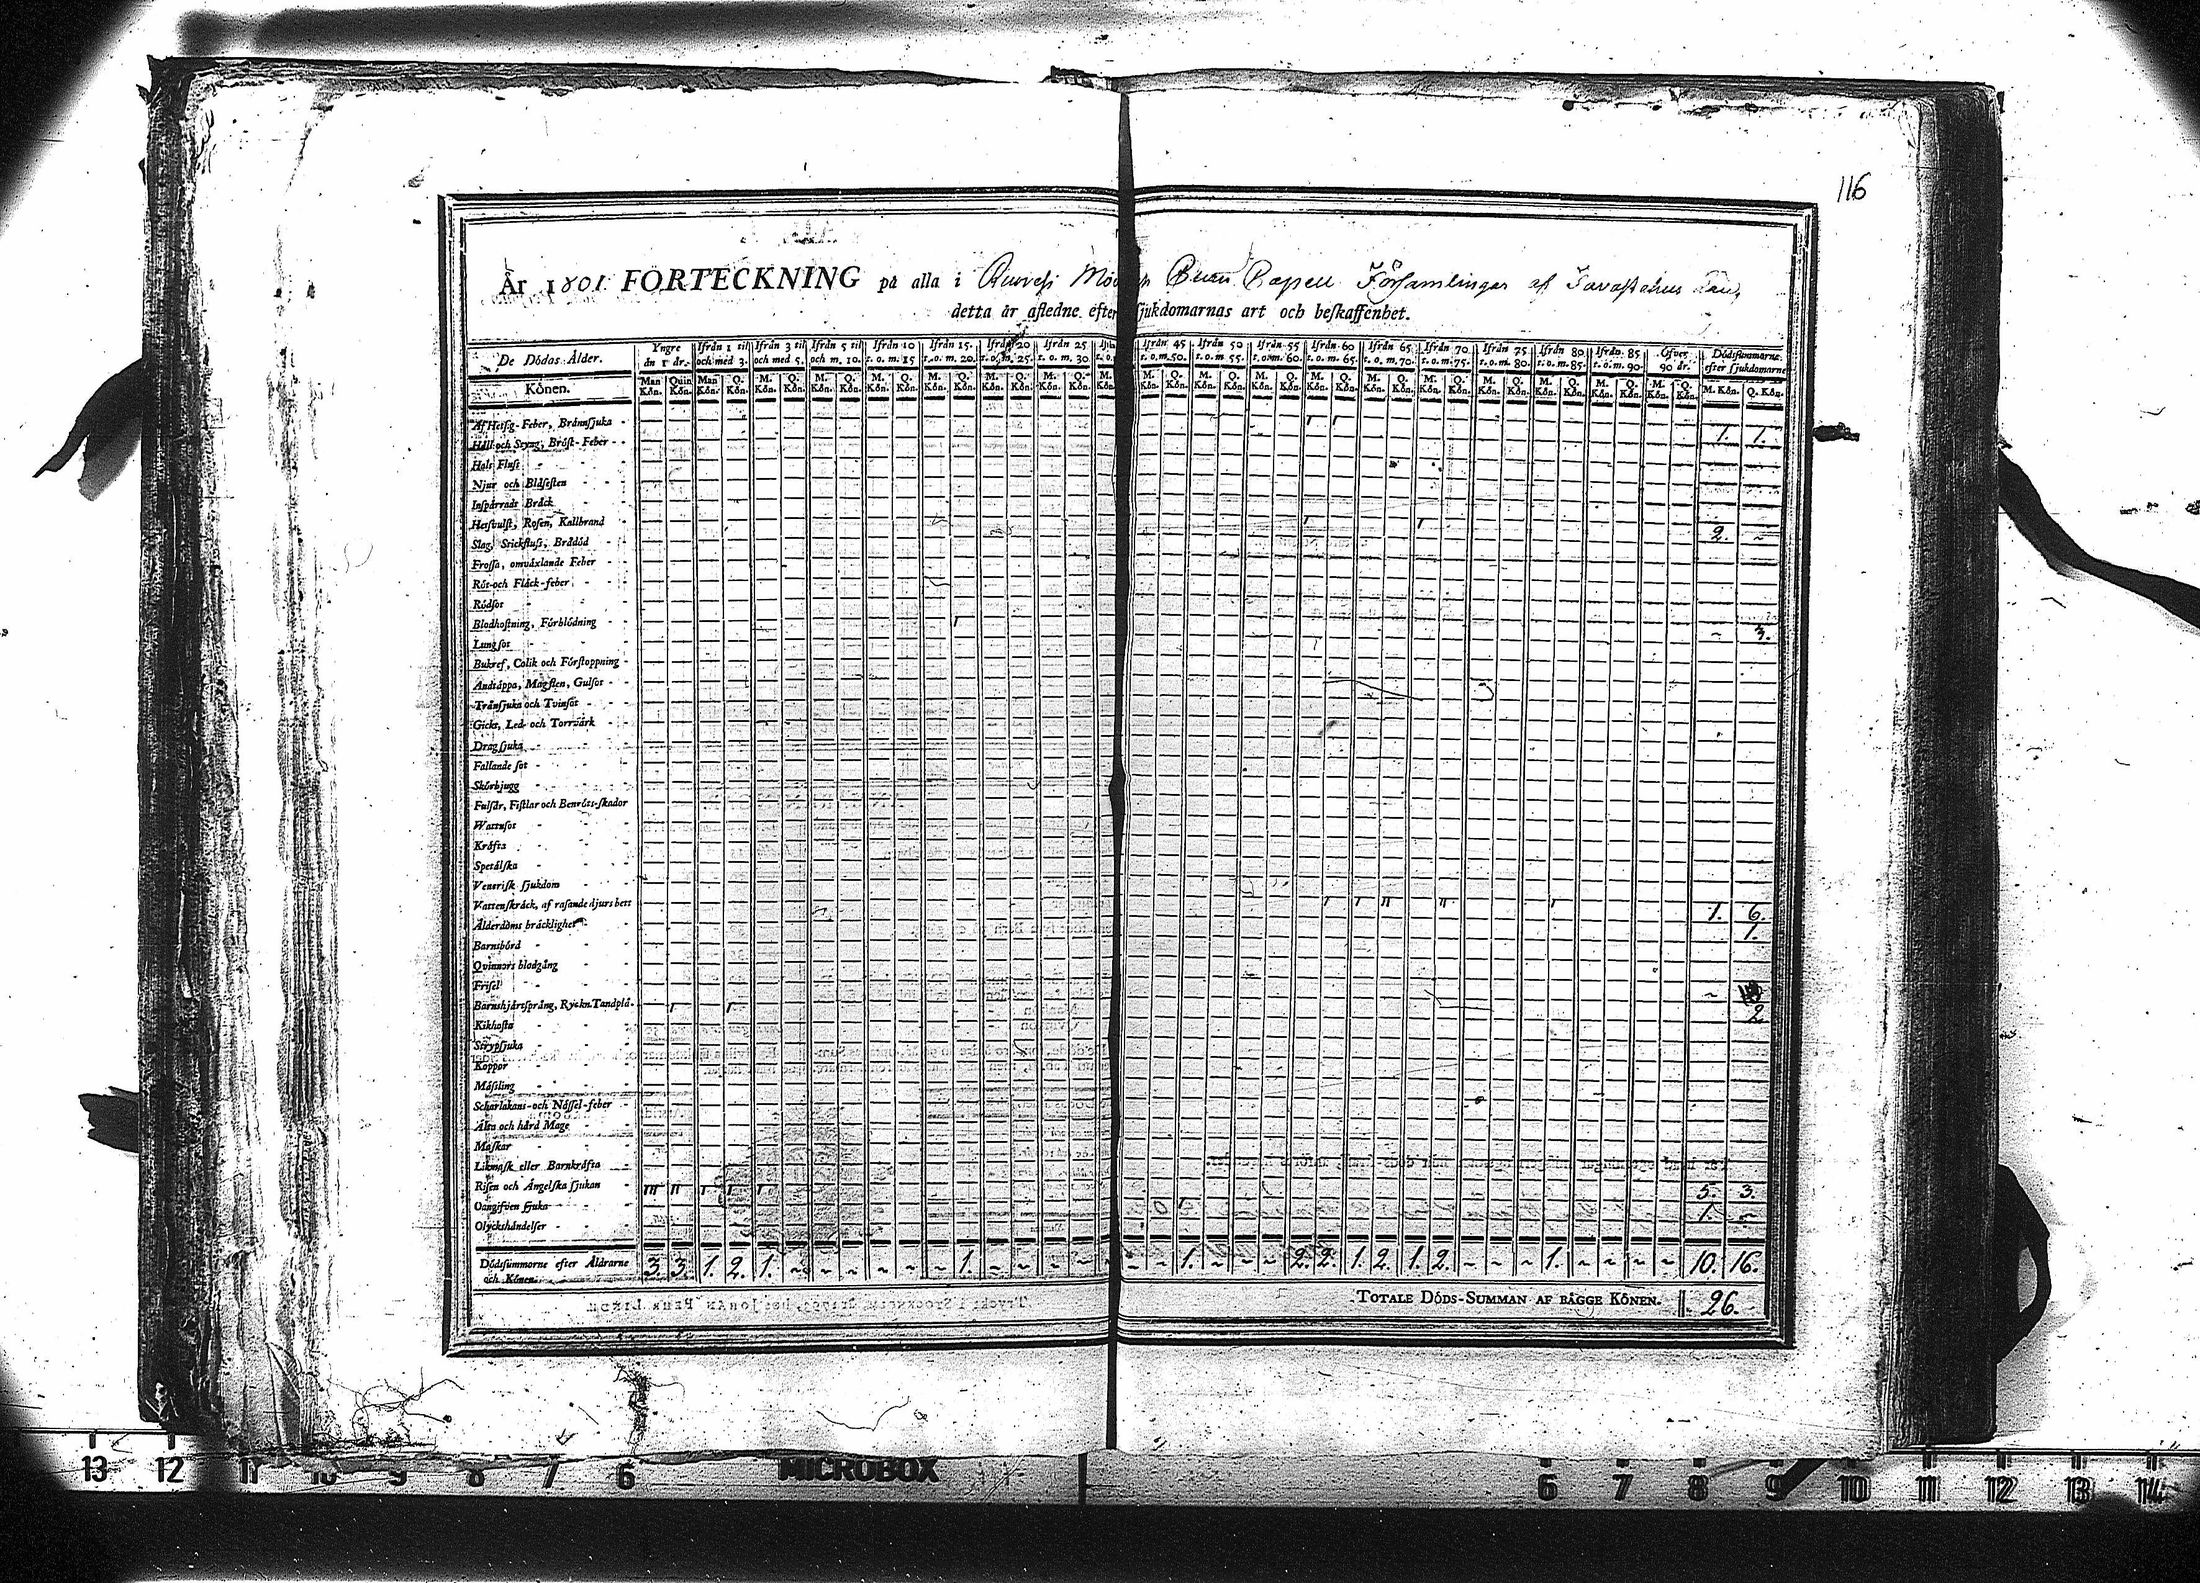 116
År 1801. FÖRTECKNING på alla i Församlingar af Tavastehus
detta år afledne efter sjukdomarnas art och beskaffenhet.
De Dödas Ålder. Yngre än 1 år. Ifrån 1 til och med 3. Ifrån 3 til och med 5. Ifrån 5 til och m. 10. Ifrån 10 t. o. m. 15 Ifrån 15. t. o. m. 20. Ifrån 20 t. o. m. 25. Ifrån 25 t. o. m. 30 Ifrån 45 t. o. m. 50. Ifrån 50 t. o. m. 55. Ifrån 55 t. o. m. 60. Ifrån 60 t. o. m. 65. Ifrån 65 t. o. m. 70. Ifrån 70 t. o. m. 75. Ifrån 75 t. o. m. 80. Ifrån 80 t. o. m. 85. Ifrån 85 t. o. m. 90. Öfver 90 år. Dödssummorne efter sjukdomarne
Könen. Man Kön. Quin Kön. Man Kön. Q. Kön. M. Kön. Q. Kön. M. Kön. Q. Kön. M. Kön. Q. Kön. M. Kön. Q. Kön. M. Kön. Q. Kön. M. Kön. Q. Kön. M. Kön. M. Kön. Q. Kön. M. Kön. Q. Kön. M. Kön. Q. Kön. M. Kön. Q. Kön. M. Kön. Q. Kön. M. Kön. Q. Kön. M. Kön. Q. Kön. M. Kön. Q. Kön. M. Kön. Q. Kön. M. Kön. Q. Kön. M. Kön. Q. Kön.
Af Hetsig-Feber, Brännsjuka
Håll och Styng, Bröst-Feber 1. 1.
Hals Fluss
Njur och Blåsesten
Inspärradt Bråck
Hetsvulst, Rosen, Kallbrand
Slag, Stickfluss, Brådöd 2. ~
Frossa, omväxlande Feber
Röt-och Fläck-feber
Rödsot
Blodhostning, Förblödning
Lungsot ~ 3.
Bukref, Colik och Förstoppning
Andtäppa, Magsten, Gulsot
Trånsjuka och Tvinsot
Gickt, Led- och Torrvärk
Dragsjuka
Fallande sot
Skörbjugg
Fulsår, Fistlar och Benröts-skador
Wattusot
Kräfta
Spetälska
Venerisk sjukdom
Vattenskräck, af rasande djurs bett
Ålderdoms bräcklighet 1. 6.
Barnsbörd 1.
Qvinnors blodgång
Frisel
Barnshjärtsprång, Ryckn. Tandplå. ~
Kikhosta 2
Strypsjuka
Koppor
Mässling
Scharlakans- och Nässel-feber
Älta och hård Mage
Maskar
Likmask eller Barnkräfta
Risen och Ängelska sjukan 5. 3.
Oangifven sjuka 1. ~
Olyckshändelser
Dödssummorne efter Åldrarne och Könen. 3. 3. 1. 2. 1. ~ ~ ~ ~ ~ ~ 1. ~ ~ ~ ~ ~ ~ ~ 1. ~ ~ ~ 2. 2. 1. 2. 1. 2. ~ ~ ~ 1. ~ ~ ~ ~ 10. 16.
TOTALE DÖDS-SUMMAN AF BÄGGE KÖNEN. 26.
13 12 11 10 9 8 7 6 MICROBOX 6 7 8 9 10 11 12 13 14